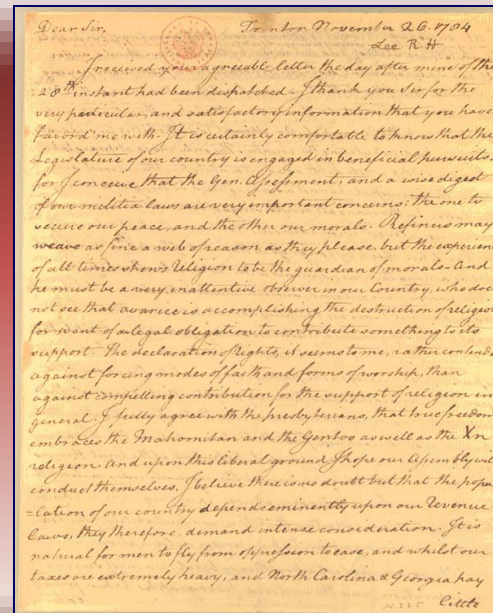 Dear Sir, Trenton November 26. 1784
Lee R H
I received your agreeable letter the day after mine of the
28th instant had been dispatched. I thank you Sir for the
very particular, and satisfactory information that you have
favord me with. It is certainly comfortable to know that the
Legislature of our country is engaged in beneficial pursuits.
for I conceive that the Gen. Assessment, and a wise digest
of our militia laws are very important concerns: the one to
secure our peace, and the other our morals. Refiners may
weave as fine a web of reason as they please, but the experien
of all times shows Religion to be the guardian of morals. And
he must be a very inattentive observer in our Country, who doe
not see that avarice is accomplishing the destruction of religion
for want of a legal obligation to contribute something to its
support. The declaration of Rights, it seems to me, rather contends
against forcing modes of faith and forms of worship, than
against compelling contribution for the support of religion in
general. I fully agree with the presbyterians, that true freedom
embraces the Mahomitan and the Gentoo as well as the Xn
religion. And upon this liberal ground I hope our Assembly will
conduct themselves. I believe there is no doubt but that the popu
=lation of our country depends eminently upon our Revenue
laws, they therefore, demand intense consideration. It is
natural for men to fly from oppression to ease, and whilst our
taxes are extremely heavy, and North Carolina & Georgia pay
little